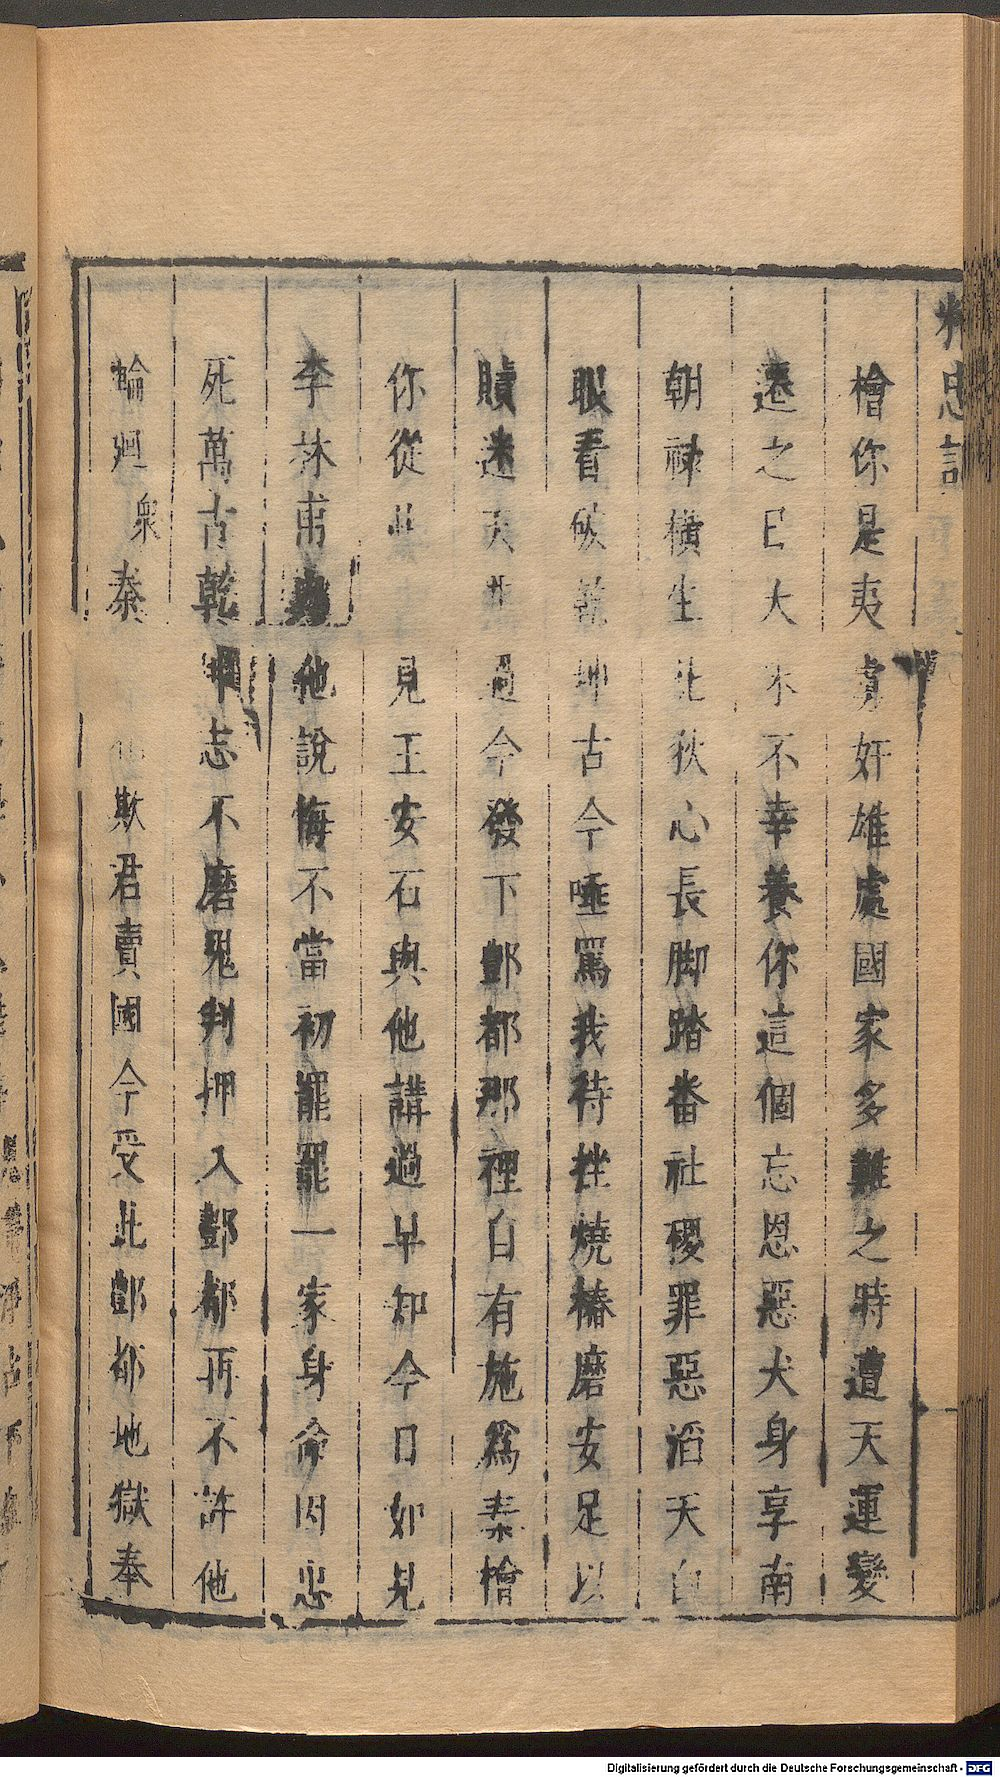 精忠記
檜你是夷虜奸雄處國家多難之時遭天運變
遷之日大不幸養你這個忘恩惡犬身享南
朝祿橫生北狄心長脚踏番社稷罪惡滔天自
眼看坤古今唾罵我待挫燒樁磨安足以
贖迷天過今發下酆都那裡自有施爲秦檜
你從此見王安石與他講過早知今日如見
李林甫他說悔不當初罷罷一家身命因忠
死萬古乾坤志不磨鬼判押入酆都再不許他
輪廻衆秦欺君賣國今受此酆都地獄奉
Digitalisierung gefördert durch die Deutsche Forschungsgemeinschaft - DFG